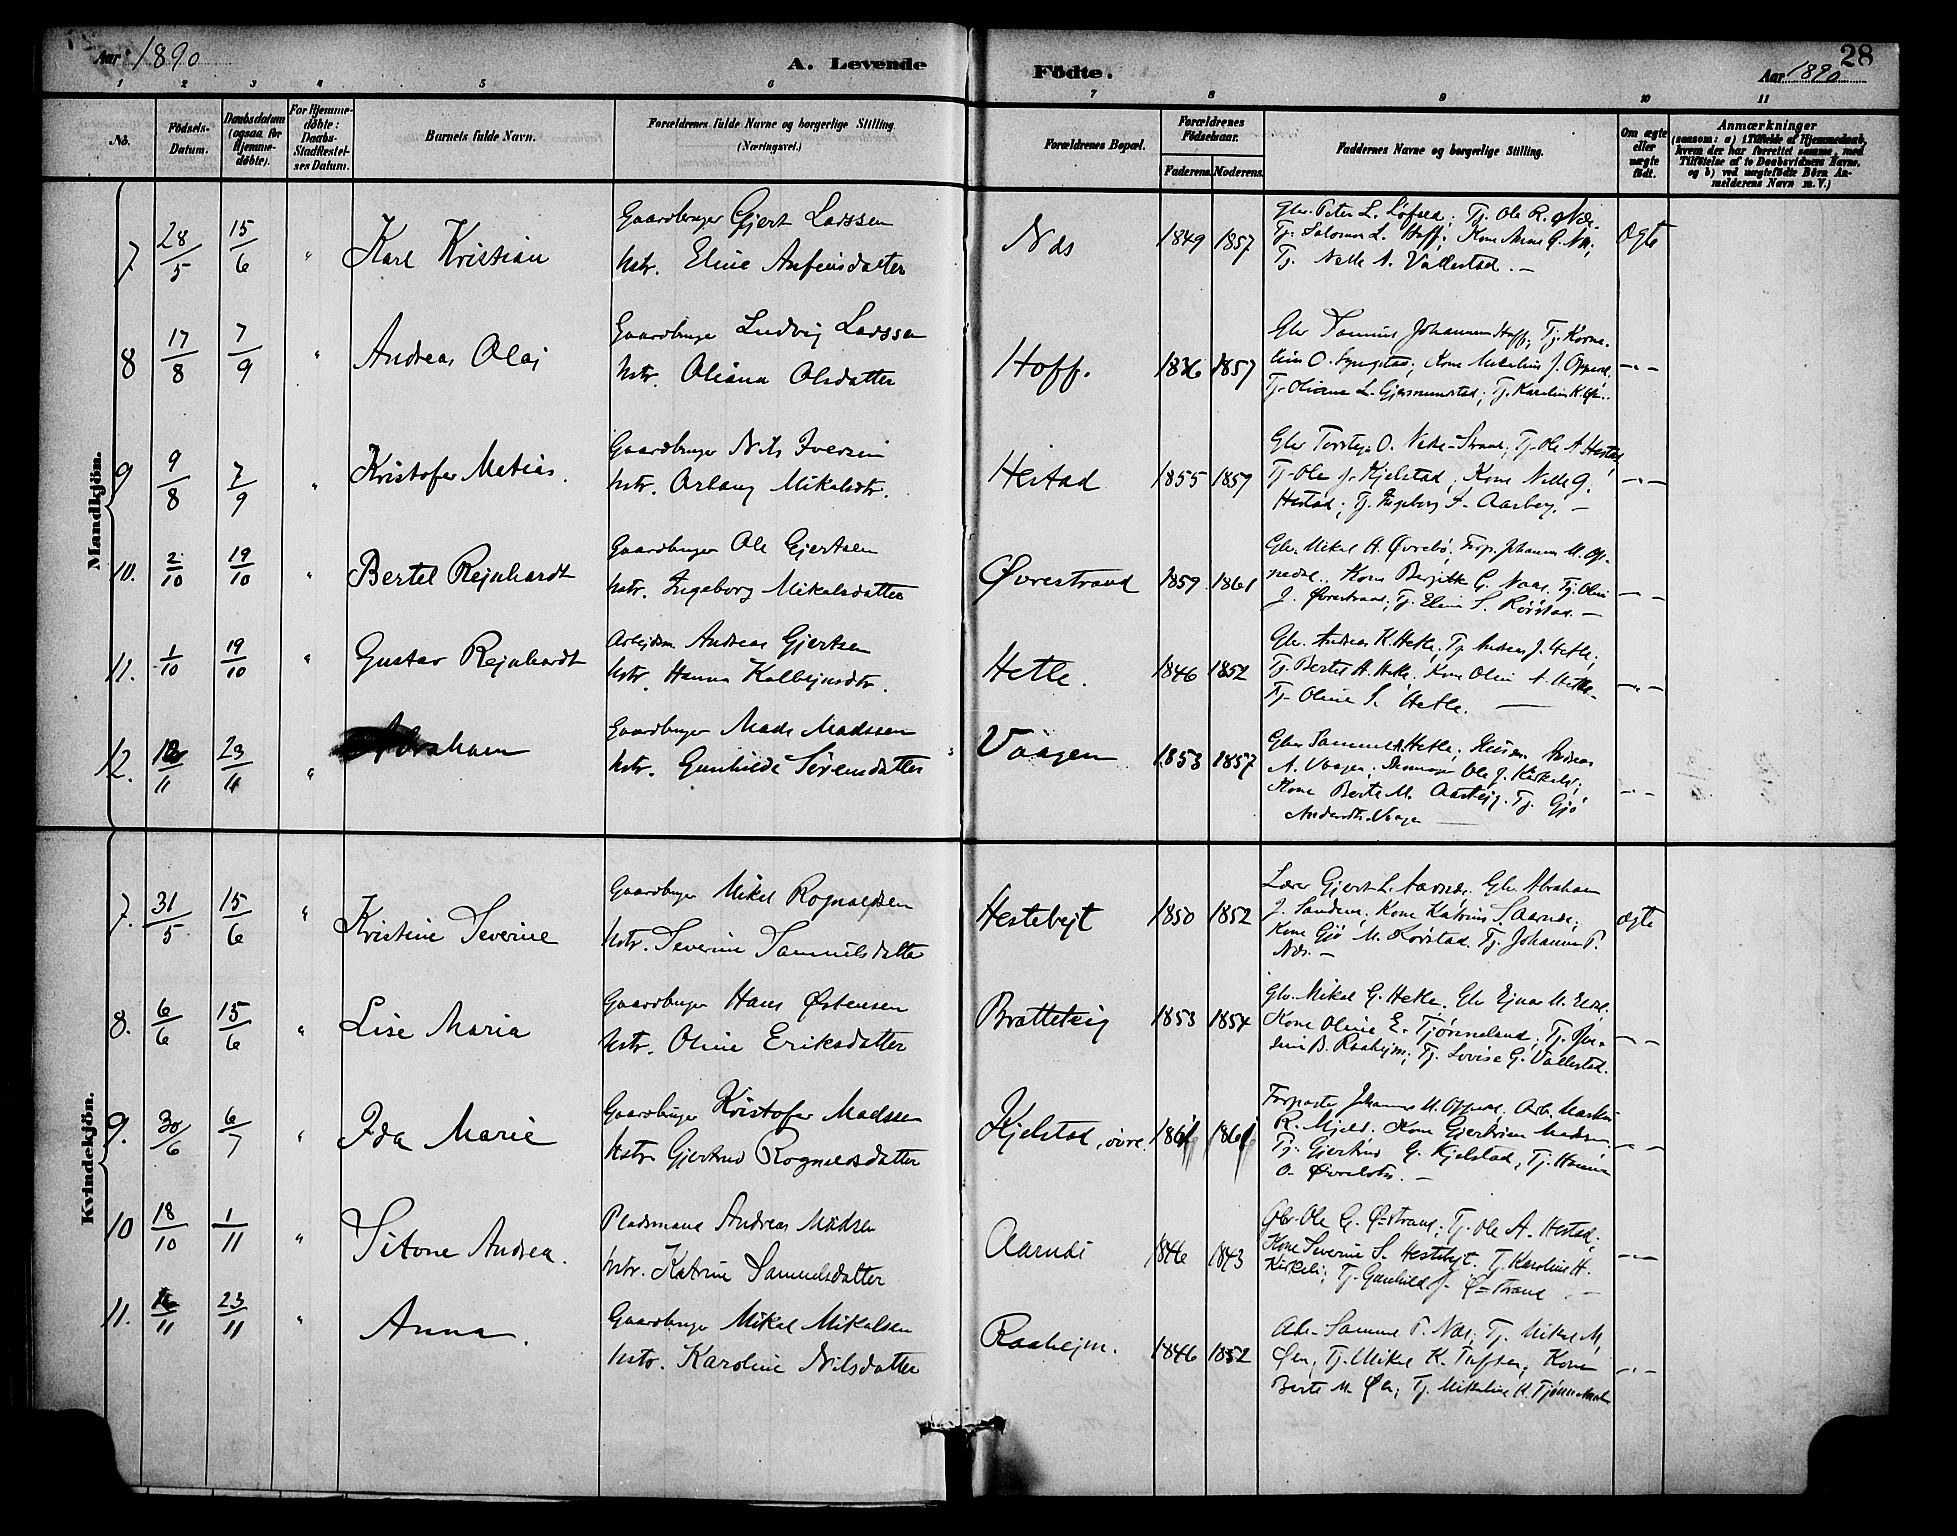 Aar 1890
A. Levende Födte.
28
Aar 1890
1 2 3 4 5 6 7 8 9 10 11
No.
Födsels-Datum.
Daabsdatum (ogsaa for Hjemme-döbte).
For Hjemme-döbte: Daabs-Stadfæstel-ses Datum.
Barnets fulde Navn.
Forældrenes fulde Navne og borgerlige Stilling (Næringsvei.)
Forældrenes Bopæl.
Forældrenes Födselsaar.
Faderens. Moderens.
Faddernes Navne og borgerlige Stilling.
Om ægte eller uægte födt.
Anmærkninger
(saasom: a) i Tilfælde af Hjemmedaab, hvem der har forrettet samme, med Tilföielse af to Daabsvidners Navne, og b) ved uægtefödte Börn An-melderens Navn m. V.)
Mandkjön.
7 28/5 15/6 " Karl Kristian
Gaardbruger Gjert Larssen
hstr. Eline Anfinsdatter
Næs 1849 1857
Gbr. Peter L. Løfald; Tj. Ole R. Næs.
Tj. Salomon L. Hoff; Kone Anne G. Næs;
Tj. Nelle A. Vallestad. —
Ægte
8 17/8 7/9 " Andreas Olai
Gaardbruger Ludvig Larssen
hstr. Oliana Olsdatter
Hoff. 1836 1857
Tj. Oliane L. Gjesmunstad; Tj. Karolin K.
—"—
9 9/8 7/9 " Kristofer Matias.
Gaardbruger Nils Iversen
hstr. Arlaug Mikalsdtr.
Hestad 1855 1859
Tj. Ole A. Hestad
Tj. Ole J. Kjelstad; Kone Nelle G.
Hestad; Tj. Ingeborg S. Aarberg. —
—"—
10. 2/10 19/10 " Bertel Rejnhardt
Gaardbruger Ole Gjertsen
hstr. Ingeborg Mikalsdatter
Øvrestrand 1859 1861
Gbr. Mikal H. Øvrebø; Forp. Johannes M. Op-
pedal. Kone Bergitte G. Naas, Tj. Olin
J. Øvrestrand; Tj. Elina S. Rørstad. —
—"—
11. 1/10 19/10 " Gustav Rejnhardt
Arbejdsm. Andreas Gjertsen
hstr. Hanna Kolbejnsdtr.
Hetle. 1846 1852
Gbr. Andreas K. Hetle; Tj. Andreas J. Hetle;
Tj. Bertel A. Hetle. Kone Olin A. Hetle
Tj. Oline S. Hetle. —
—"—
12. 11 23/11 " Abraham
Gaardbruger Mads Madssen
hstr. Gunhilde Sørensdatter
Vaagen 1853 1857
Gbr. Samuel A. Hetle; Andreas
A. Vaagen; Ole J. Kirkeli;
Kone Berte M. Aarbejg. Tj. Gjø
Andersdtr. Vaagen —
—"—
Kvindekjön.
7. 31/5 15/6 " Kristine Severine
Gaardbruger Mikel Rognaldsen
hstr. Severine Samuelsdatter
Hestebejt 1850 1852
Lærer Gjert L. Aarnæs. Gbr. Abraham
J. Sandene; Kone Katrine S. Aarnæs;
Kone Gjø M. Rørstad. Tj. Johanne P.
Næs. —
ægte
8. 6/6 15/6 " Lise Maria
Gaardbruger Hans Østensen
hstr. Oline Eriksdatter
Bratteteig 1853 1854
Gbr. Mikal G. Hetle. Gbr. Ejnar M.
Kone Oline E. Tjønneland; Tj.
B. Raahejm; Tj. Lovise G. Vallestad.
—"—
9. 30/6 6/7 " Ida Marie
Gaardbruger Kristofer Madssen
hstr. Gjertrud Rognaldsdatter
Kjelstad, øvre. 1861 1861
Forpagter Johannes M. Oppedal, Arb. Martin
R. Mjeld. Kone Gjertrud Madssen.
Tj. Gjertrud G. Kjelstad; Tj. Hanna
O. Øvrebotn. —
—"—
10 18/10 1/11 " Sitone Andrea.
Pladsmand Andreas Madsen
hstr. Katrine Samuelsdatter
Aarnæs 1846 1843
Gbr. Ole G. Ø-strand; Tj. Ole A. Hestad;
Kone Severine S. Hestebejt. Tj. Karoline H.
Kirkeli; Tj. Gunhild J. Ø-strand —
—"—
11. 16/11 23/11 " Anna.
Gaardbruger Mikal Mikalsen
hstr. Karoline Nilsdatter
Raahejm. 1846 1852
Samuel P. Næs; Tj. Mikal M.
Øen; Tj. Mikal K. Toften; Kone
Berte M. Øen; Tj. Mikaline H. Tjønneland
—"—